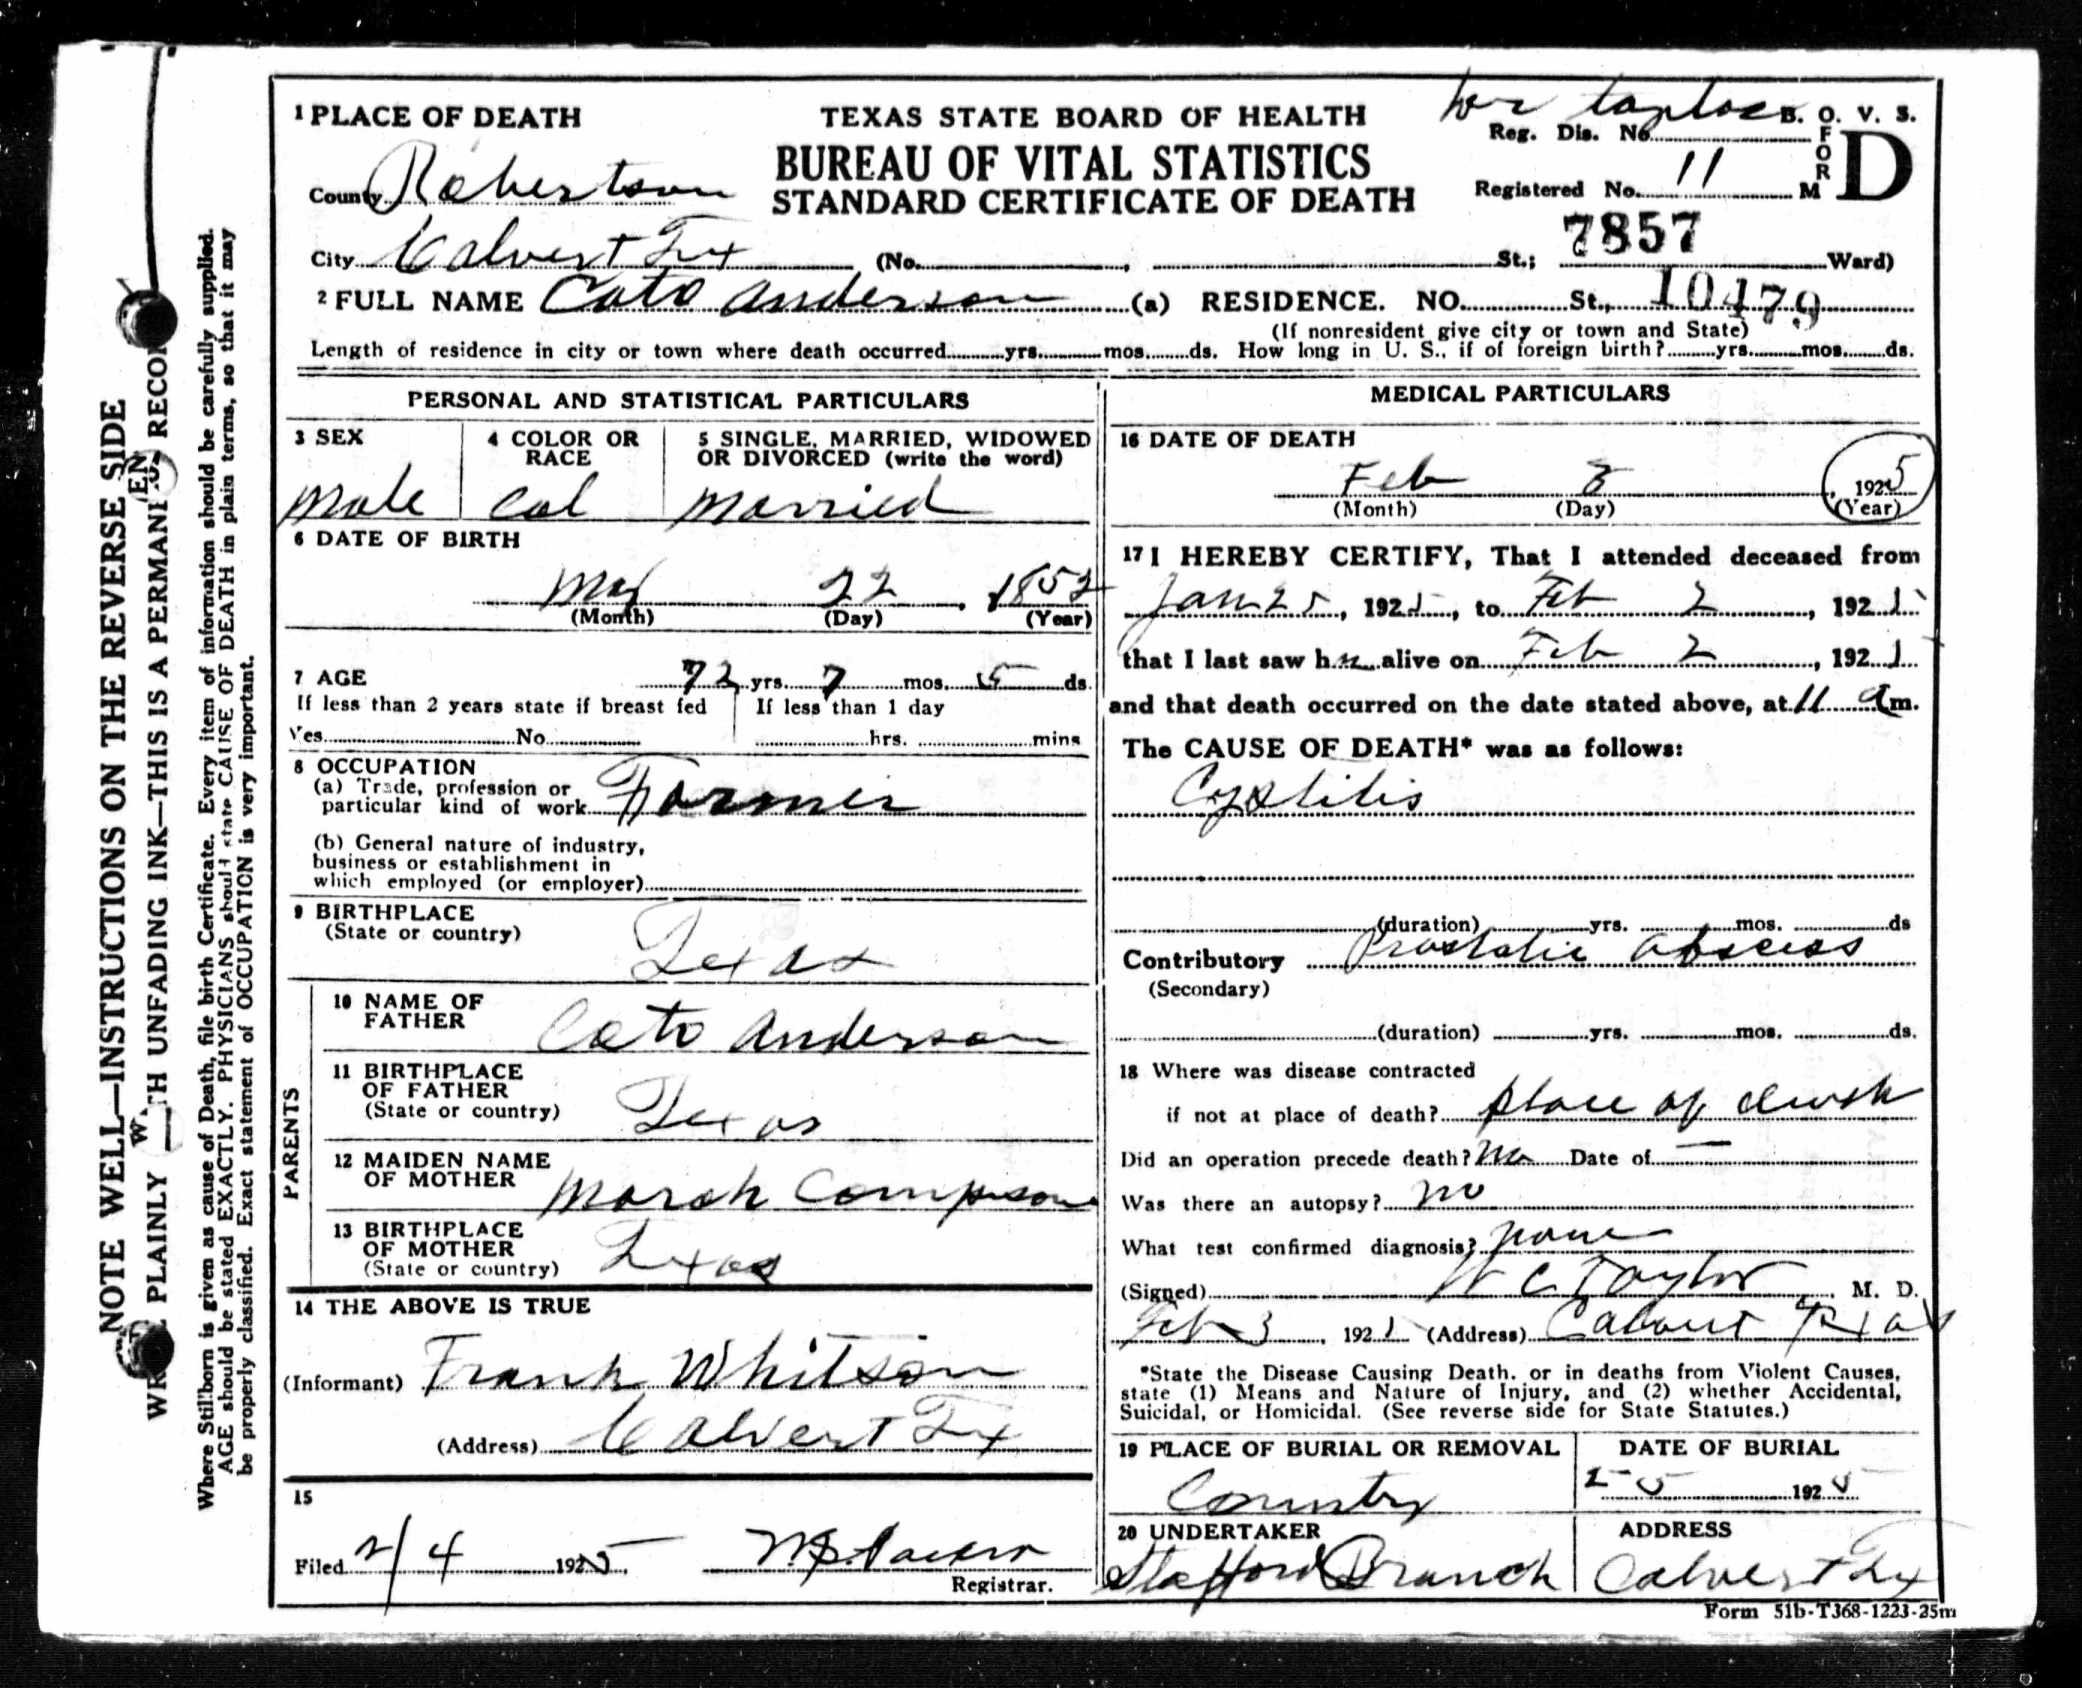 1 PLACE OF DEATH
TEXAS STATE BOARD OF HEALTH
B. O. V. S.
BUREAU OF VITAL STATISTICS
STANDARD CERTIFICATE OF DEATH
Reg. Dis. No.
Registered No. 11
FORM D
County Robertson
7857
City Calvert Tex (No. , St.; Ward)
2 FULL NAME Cato Anderson (a) RESIDENCE. NO. St., 10479
(If nonresident give city or town and State)
Length of residence in city or town where death occurred yrs. mos. ds. How long in U. S., if of foreign birth? yrs. mos. ds.
PERSONAL AND STATISTICAL PARTICULARS
3 SEX
Male
4 COLOR OR RACE
Col
5 SINGLE, MARRIED, WIDOWED
OR DIVORCED (write the word)
Married
6 DATE OF BIRTH
May 22, 1852
(Month) (Day) (Year)
7 AGE 72 yrs. 7 mos. 5 ds.
If less than 2 years state if breast fed
Yes No
If less than 1 day
hrs. mins
8 OCCUPATION
(a) Trade, profession or
particular kind of work Farmer
(b) General nature of industry,
business or establishment in
which employed (or employer)
9 BIRTHPLACE
(State or country)
Texas
PARENTS
10 NAME OF
FATHER Cato Anderson
11 BIRTHPLACE
OF FATHER
(State or country) Texas
12 MAIDEN NAME
OF MOTHER Marah Compson
13 BIRTHPLACE
OF MOTHER
(State or country) Texas
14 THE ABOVE IS TRUE
(Informant) Frank Whitson
(Address) Calvert Tex
15
Filed 2/4 1925,
Registrar.
MEDICAL PARTICULARS
16 DATE OF DEATH
Feb 3, 1925
(Month) (Day) (Year)
17 I HEREBY CERTIFY, That I attended deceased from
Jan 25, 1925, to Feb 2, 1925
that I last saw him alive on Feb 2, 1925
and that death occurred on the date stated above, at 11 a m.
The CAUSE OF DEATH* was as follows:
Cystitis
(duration) yrs. mos. ds
Contributory Prostatic abscess
(Secondary)
(duration) yrs. mos. ds.
18 Where was disease contracted
if not at place of death? place of death
Did an operation precede death? No Date of —
Was there an autopsy? no
What test confirmed diagnosis? none
(Signed) W C Taylor, M. D.
Feb 3, 1925 (Address) Calvert Texas
*State the Disease Causing Death, or in deaths from Violent Causes,
state (1) Means and Nature of Injury, and (2) whether Accidental,
Suicidal, or Homicidal. (See reverse side for State Statutes.)
19 PLACE OF BURIAL OR REMOVAL
Country
DATE OF BURIAL
2-5 1925
20 UNDERTAKER
Stafford Branch
ADDRESS
Calvert Tex
Form 51b-T368-1223-25m
NOTE WELL—INSTRUCTIONS ON THE REVERSE SIDE
PLAINLY WITH UNFADING INK—THIS IS A PERMANENT RECOR
Where Stillborn is given as cause of Death, file birth Certificate. Every item of information should be carefully supplied.
AGE should be stated EXACTLY. PHYSICIANS should state CAUSE OF DEATH in plain terms, so that it may
be properly classified. Exact statement of OCCUPATION is very important.